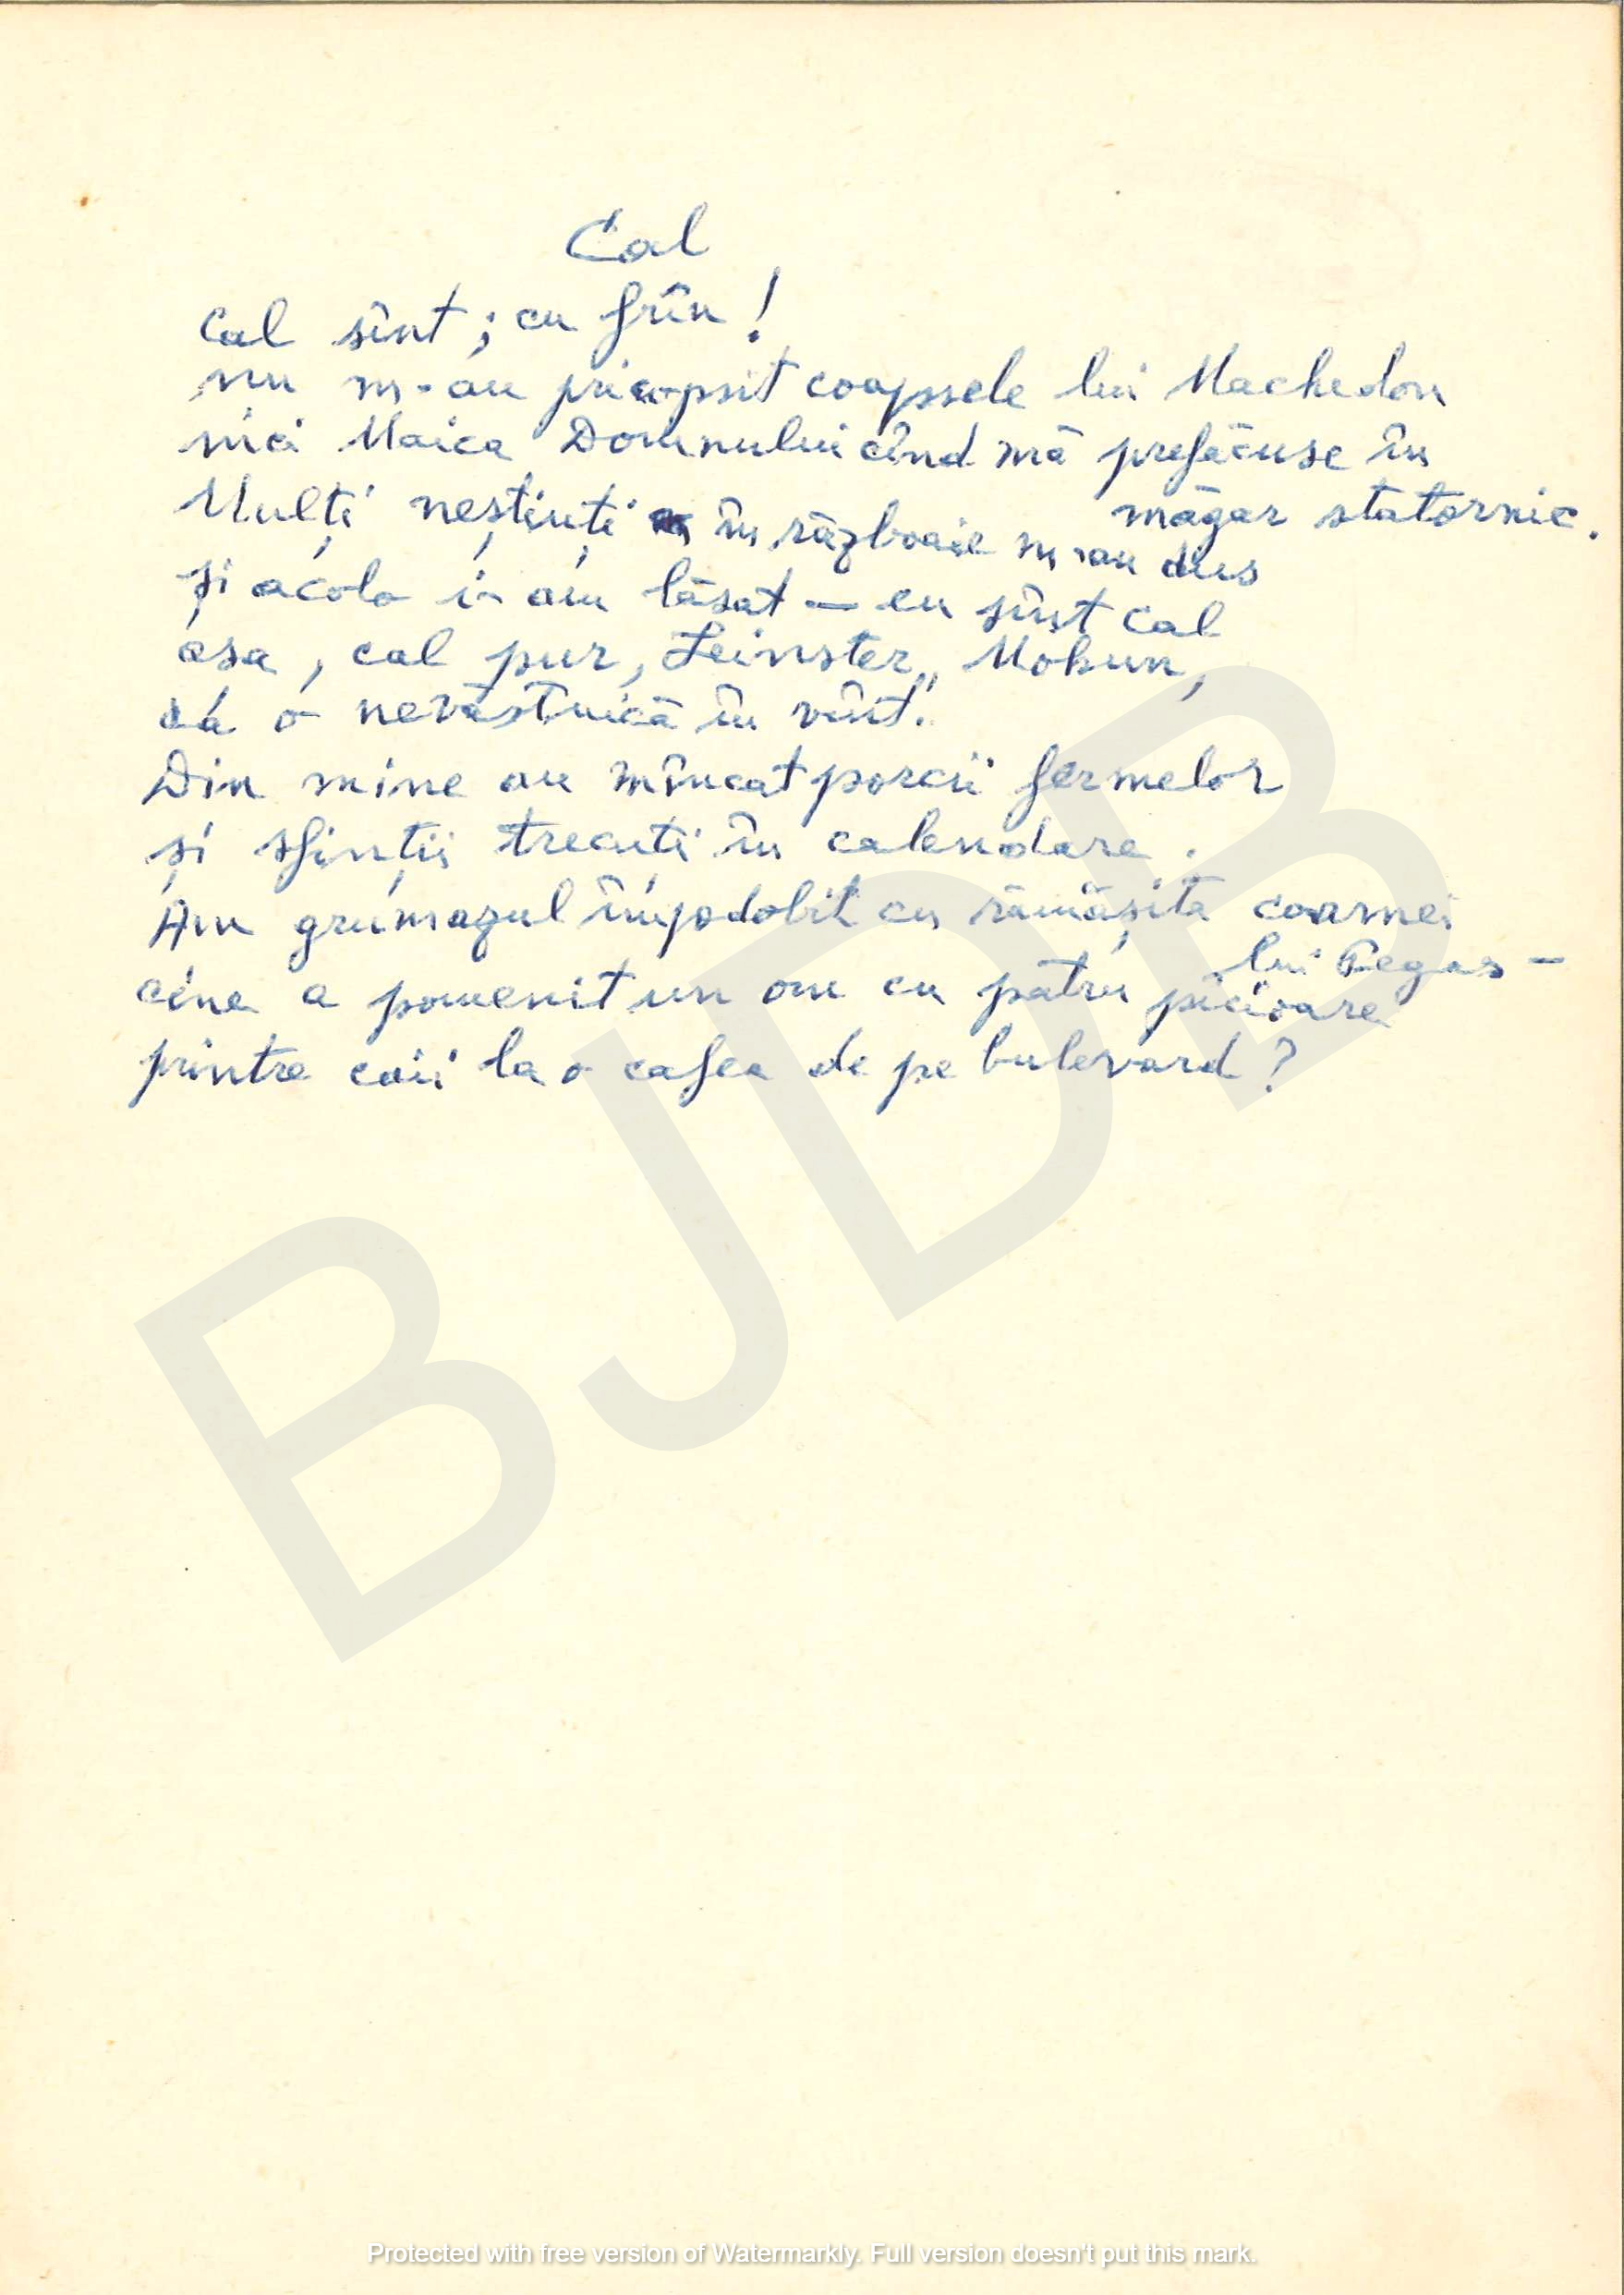 Cal
Cal sînt ; cu frîn !
nu m-au pricopsit coapsele lui Machedon
nici Maica Domnului cînd mă prefăcuse în
măgar statornic.
Mulți neștiuți în războaie m-au dus
și acolo i-am lăsat — eu sînt cal
așa, cal pur, Leinster, Mohun,
ca o nevăstuică în vînt.
Din mine au mîncat porcii fermelor
și sfinții trecuți în calendare.
Am grumazul împodobit cu rămășița coamei
lui Pegas —
cine a pomenit un om cu patru picioare
printre caii la o cafea de pe bulevard ?
BJDB
Protected with free version of Watermarkly. Full version doesn't put this mark.